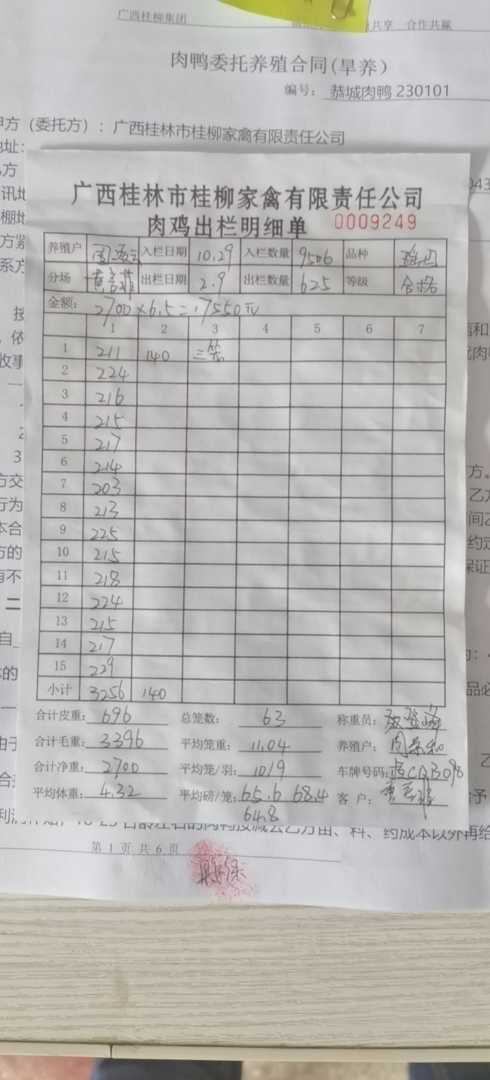 广西桂柳集团
共享 合作共赢
肉鸭委托养殖合同(旱养)
编号: 恭城肉鸭 230101
甲方(委托方):广西桂林市桂柳家禽有限责任公司
广西桂林市桂柳家禽有限责任公司
肉鸡出栏明细单 0009249
养殖户 入栏日期 10.29 入栏数量 9506 品种
分场 出栏日期 2.9 出栏数量 625 等级 合格
金额: 2700×6.5=17550元
1 2 3 4 5 6 7
1 211 140 三笼
2 224
3 216
4 215
5 217
6 214
7 203
8 213
9 225
10 215
11 218
12 224
13 215
14 217
15 229
小计 3256 140
合计皮重: 696 总笼数: 63 称重员:
合计毛重: 3396 平均笼重: 11.04 养殖户:
合计净重: 2700 平均笼/羽: 10/9 车牌号码:
平均体重: 4.32 平均磅/笼: 65.6 68.4 客户:
64.8
第 1 页 共 6 页